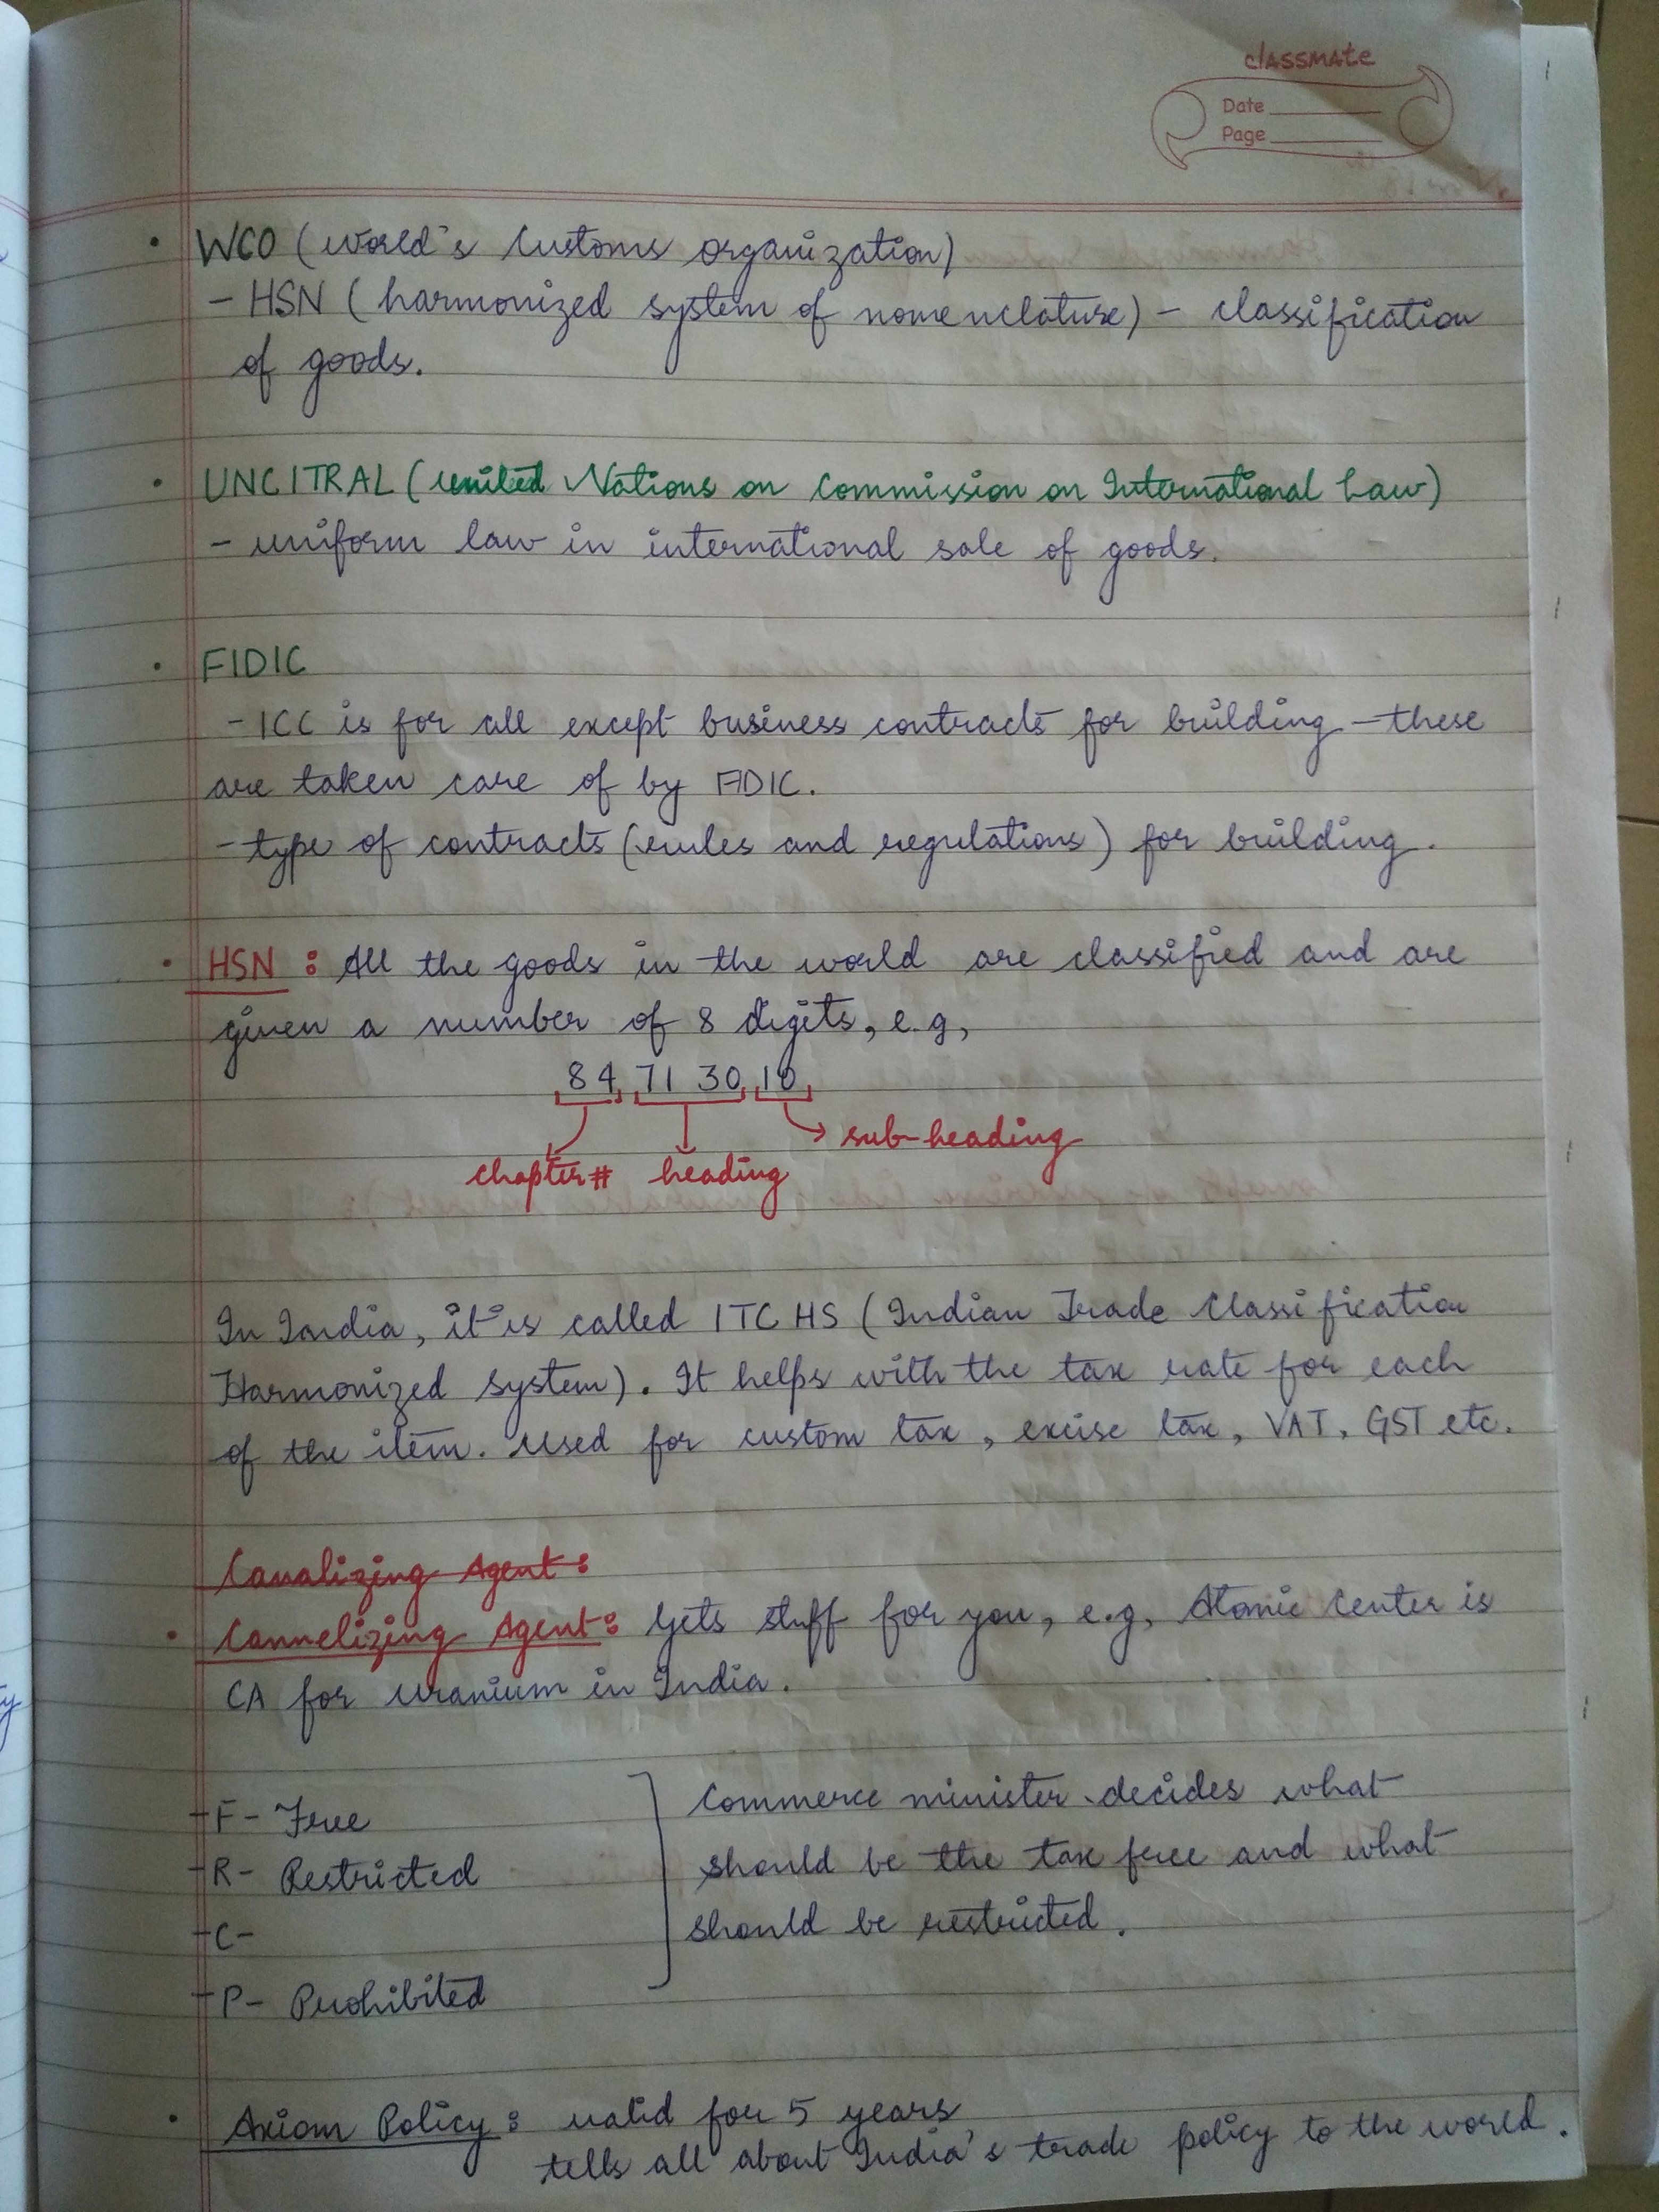 classmate
Date
Page
• WCO (World's Customs organization)
- HSN (harmonized system of nomenclature) - classification
of goods.
• UNCITRAL (United Nations on Commission on International Law)
- uniform law in international sale of goods.
• FIDIC
- ICC is for all except business contracts for building - these
are taken care of by FIDIC.
- type of contracts (rules and regulations) for building.
• HSN : All the goods in the world are classified and are
given a number of 8 digits, e.g,
84 71 30 10
sub-heading
chapter# heading
In India, it is called ITC HS (Indian Trade Classification
Harmonized System). It helps with the tax rate for each
of the item. Used for custom tax, excise tax, VAT, GST etc.
Canalizing Agent:
• Cannelizing Agent: Gets stuff for you, e.g, Atomic Center is
CA for Uranium in India.
- F - Free
Commerce minister decides what
- R - Restricted
should be the tax free and what
- C -
should be restricted.
- P - Prohibited
• Axiom Policy: valid for 5 years
tells all about India's trade policy to the world.